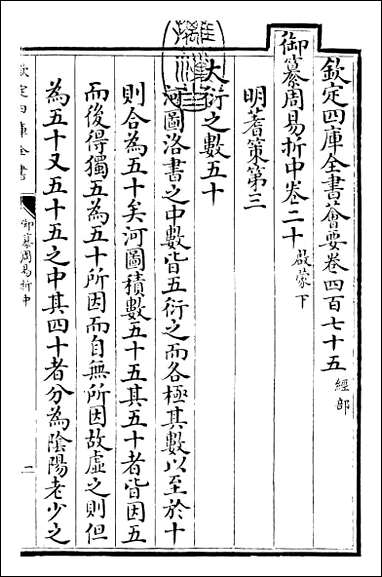 欽定四庫全書薈要卷四百七十五 經部
御纂周易折中卷二十 啟蒙下
明蓍策第三
大衍之數五十
河圖洛書之中數皆五衍之而各極其數以至於十
則合為五十矣河圖積數五十五其五十者皆因五
而後得獨五為五十所因而自無所因故虛之則但
為五十又五十五之中其四十者分為陰陽老少之
欽定四庫全書
御纂周易折中